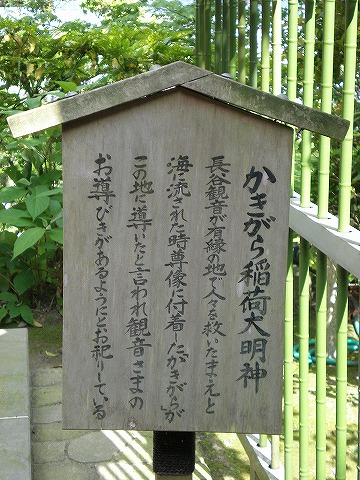 かきがら稲荷大明神
長谷観音が有縁の地で人々を救いたまえと
海に流された時尊像に付着したかきがらが
この地に導いたと言われ観音さまの
お導びきがあるようにとお祀りしている